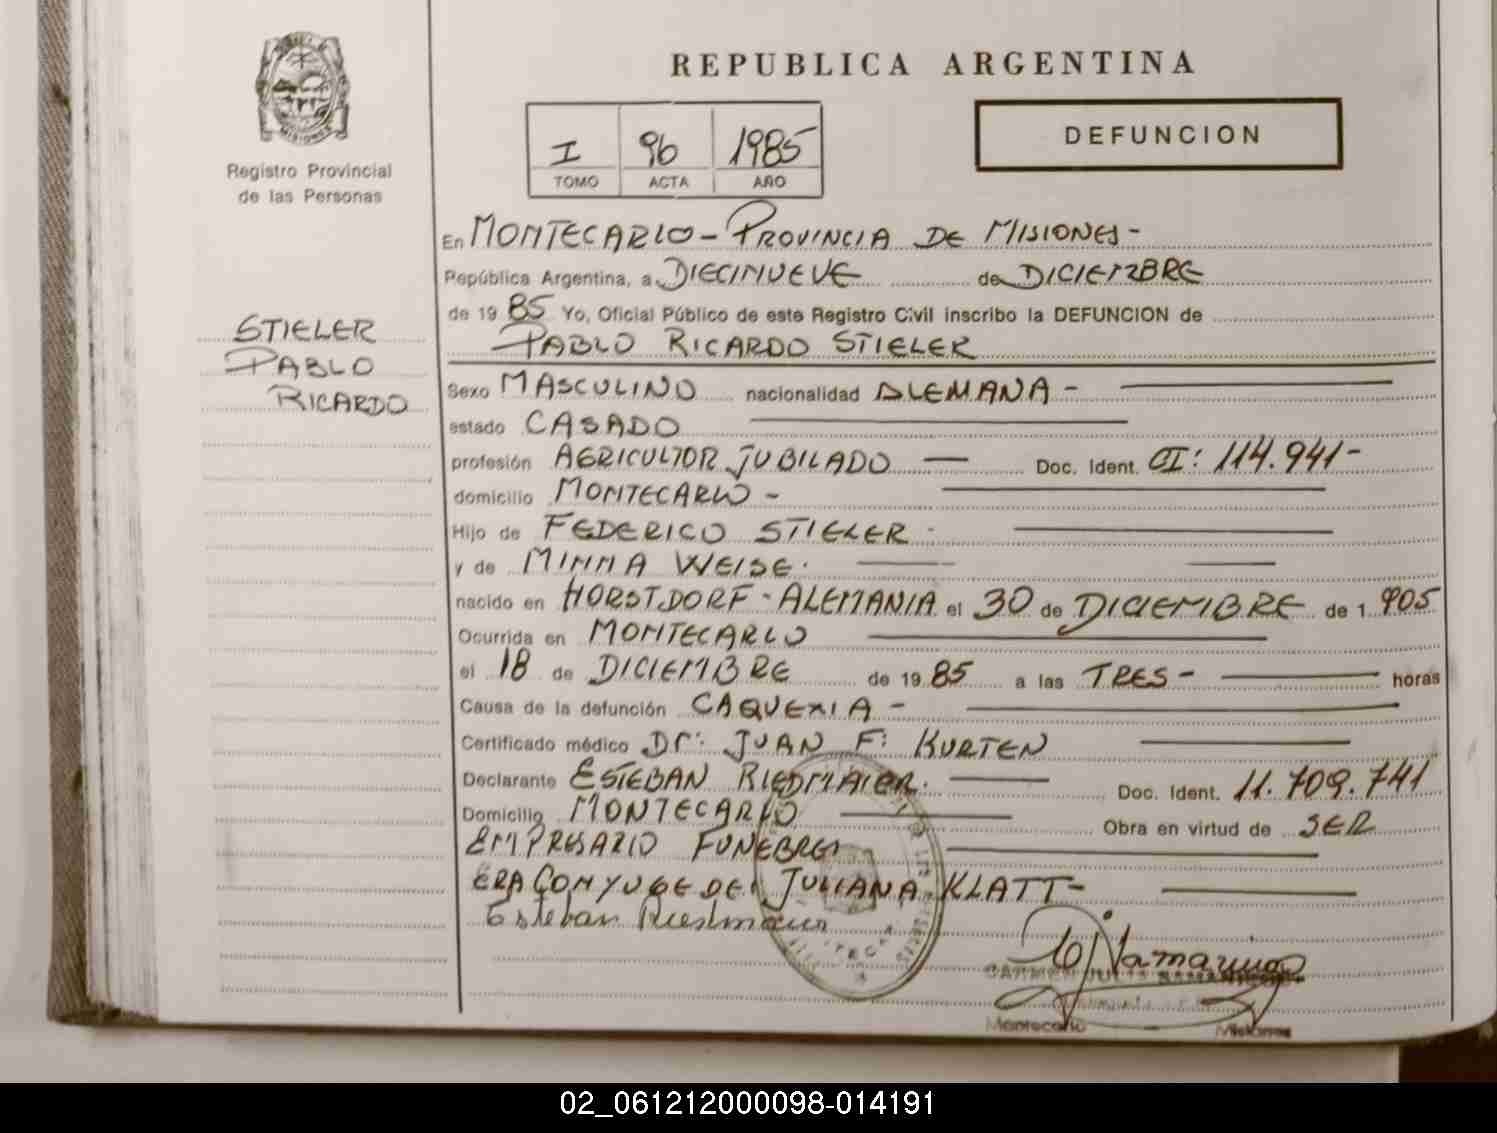 REPUBLICA ARGENTINA
MISIONES
Registro Provincial
de las Personas
I 96 1985
TOMO ACTA AÑO
DEFUNCION
STIELER
PABLO
RICARDO
En MONTECARLO - PROVINCIA DE MISIONES -
República Argentina, a DIECINUEVE de DICIEMBRE
de 19 85 Yo, Oficial Público de este Registro Civil inscribo la DEFUNCION de
PABLO RICARDO STIELER
Sexo MASCULINO nacionalidad ALEMANA -
estado CASADO
profesión AGRICULTOR JUBILADO Doc. Ident. CI: 114.941 -
domicilio MONTECARLO -
Hijo de FEDERICO STIELER -
y de MINNA WEISE.
nacido en HORSTDORF - ALEMANIA el 30 de DICIEMBRE de 1 905
Ocurrida en MONTECARLO
el 18 de DICIEMBRE de 19 85 a las TRES - horas
Causa de la defunción CAQUEXIA -
Certificado médico Dr: JUAN F: KURTEN
Declarante ESTEBAN RIEDMAIER. Doc. Ident. 11.709.741
Domicilio MONTECARLO Obra en virtud de SER
EMPRESARIO FUNEBRE
ERA CONYUGE DE: JULIANA KLATT -
Esteban Riedmaier
CARMEN JULIA
Montecarlo Misiones
02_061212000098-014191